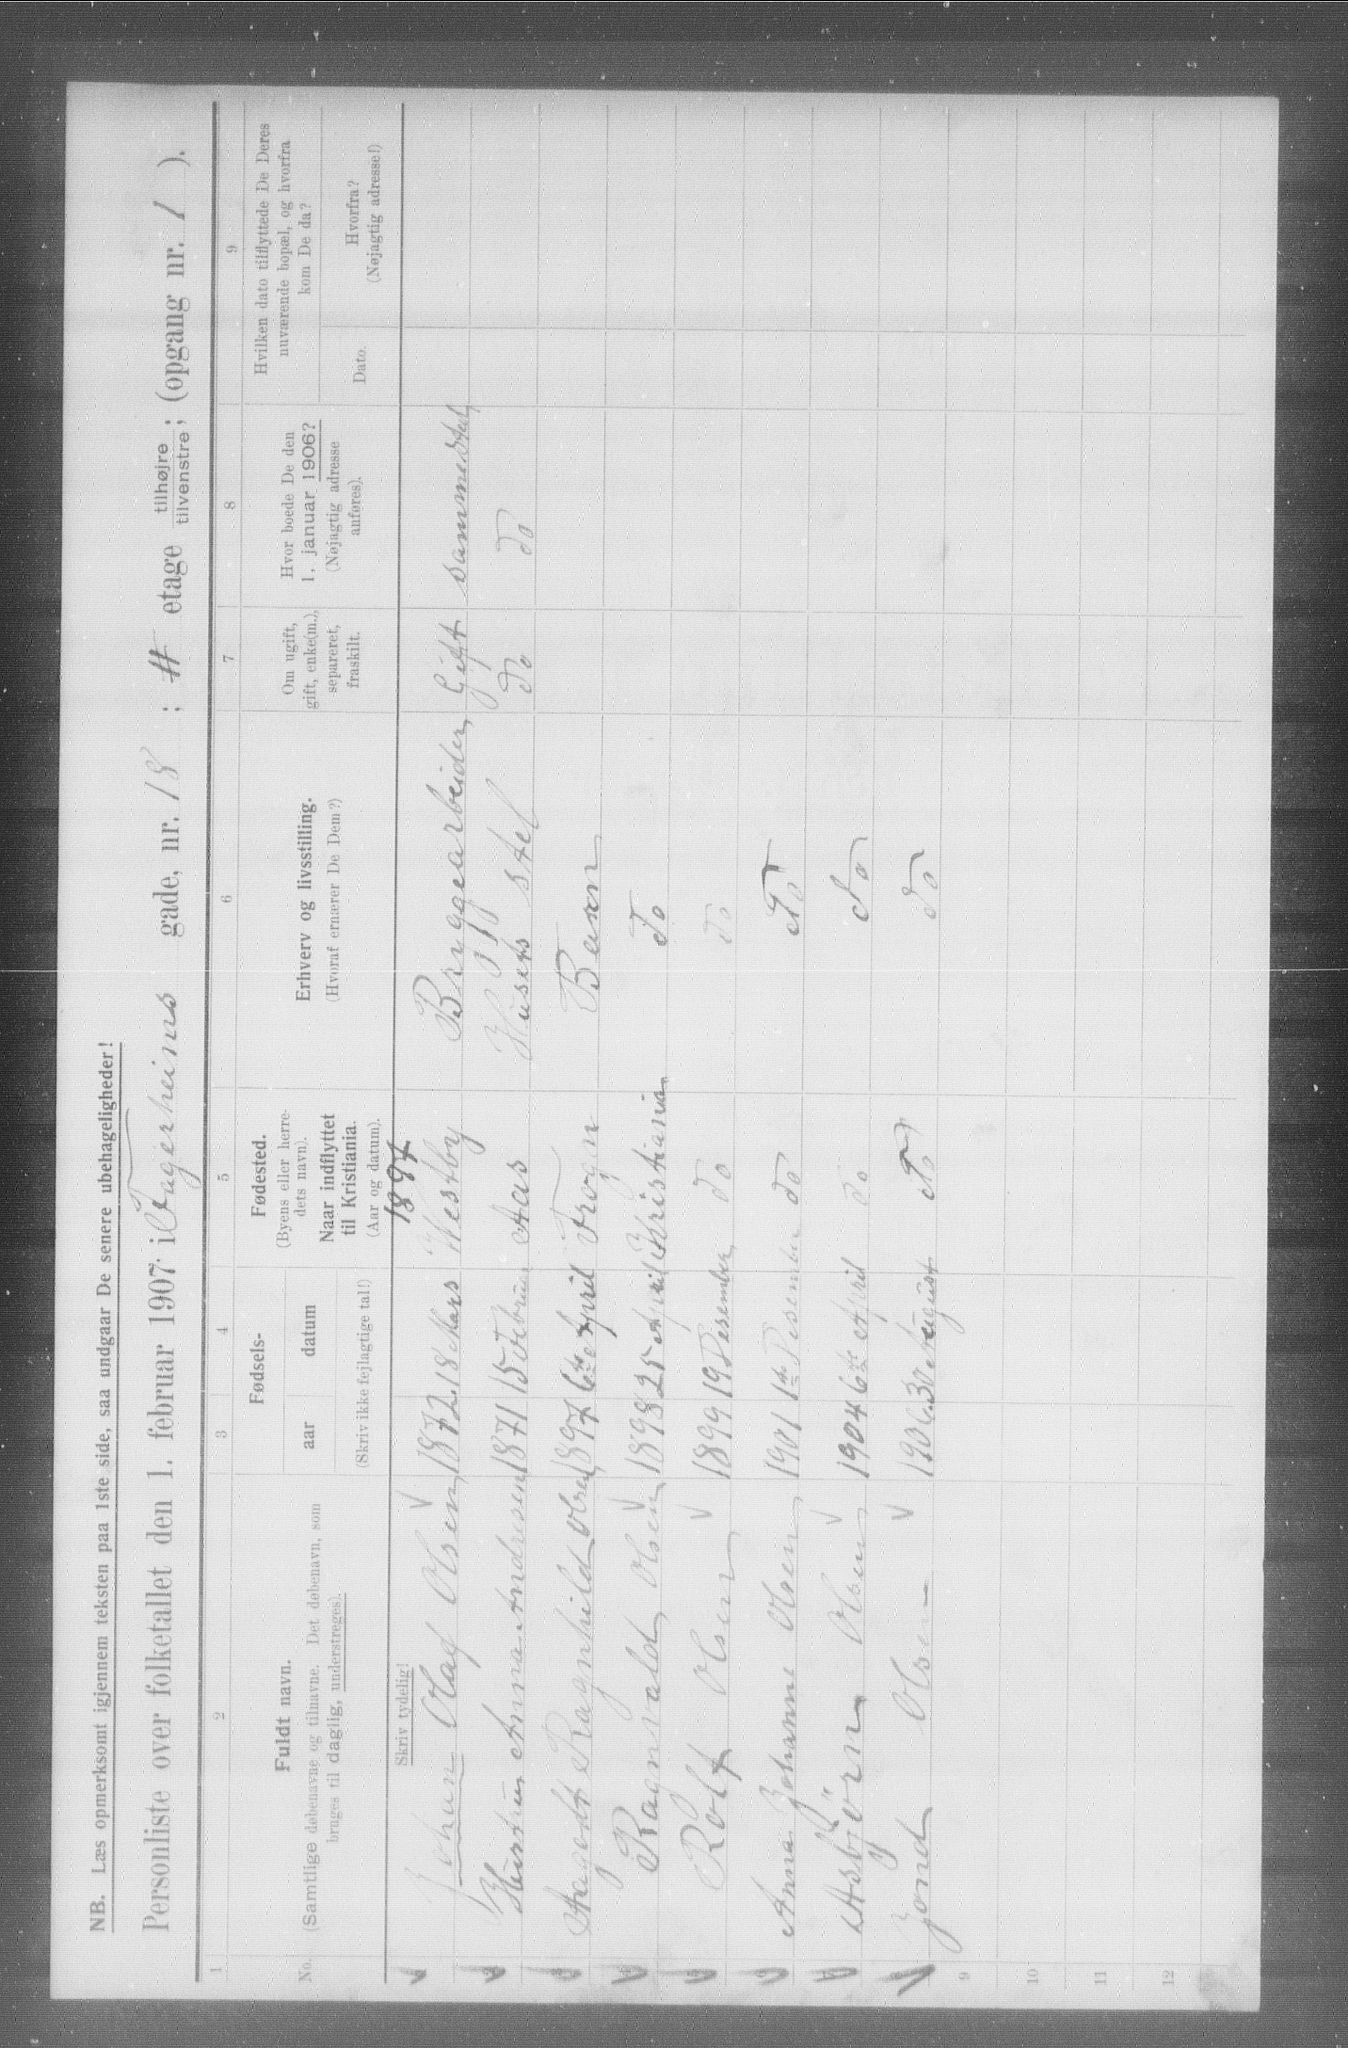 NB. Læs opmerksomt igjennem teksten paa 1ste side, saa undgaar De senere ubehageligheder!
Personliste over folketallet den 1. februar 1907 i Fagerheims gade, nr. 18 ; etage tilhøjre tilvenstre; (opgang nr. 1 ).
1 2 3 4 5 6 7 8 9
No.
Fuldt navn.
(Samtlige døbenavne og tilnavne. Det døbenavn, som
bruges til daglig, understreges).
Skriv tydelig!
Fødsels-
aar datum
(Skriv ikke fejlagtige tal!)
Fødested.
(Byens eller herre-
dets navn).
Naar indflyttet
til Kristiania.
(Aar og datum).
Erhverv og livsstilling.
(Hvoraf ernærer De Dem?)
Om ugift,
gift, enke(m.),
separeret,
fraskilt.
Hvor boede De den
1. januar 1906?
(Nøjagtig adresse
anføres).
Hvilken dato tilflyttede De Deres
nuværende bopæl, og hvorfra
kom De da?
Dato.
Hvorfra?
(Nøjagtig adresse!)
1894
Johan Olaf Olsen 1872 18 Mars Vestby Bryggearbeider Gift sammested
Hustru Anna Andresen 1871 15 Februar Aas Husets stel do do
Aagodt Ragnhild Olsen 1897 6te April Frogn Barn
Ragnvald Olsen 1898 25 April Kristiania do
Rolf Olsen 1899 19 Desember do do
Anna Johanne Olsen 1901 1te Desember do do
Asbjörn Olsen 1904 6te April do do
Jond Olsen 1906 30 August do do
9
10
11
12